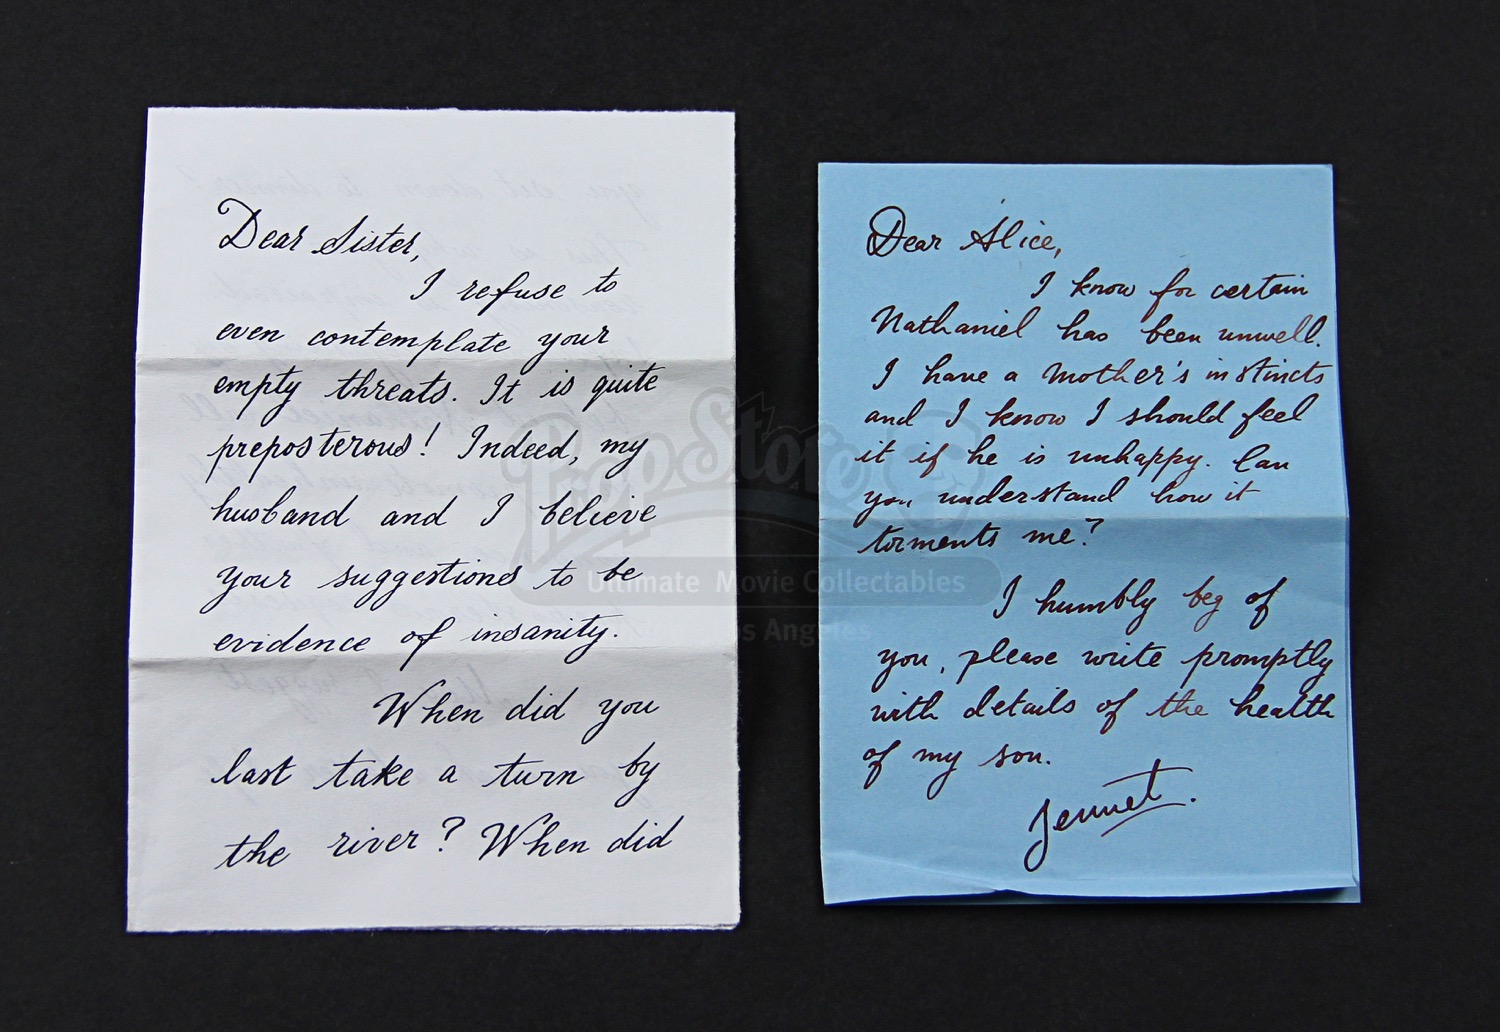 Dear Sister,
I refuse to
even contemplate your
empty threats. It is quite
preposterous! Indeed, my
husband and I believe
your suggestions to be
evidence of insanity.
When did you
last take a turn by
the river? When did
Dear Alice,
I know for certain
Nathaniel has been unwell.
I have a mother's instincts
and I know I should feel
it if he is unhappy. Can
you understand how it
torments me?
I humbly beg of
you, please write promptly
with details of the health
of my son.
Jennet.
Prop Store
Ultimate Movie Collectables
Los Angeles